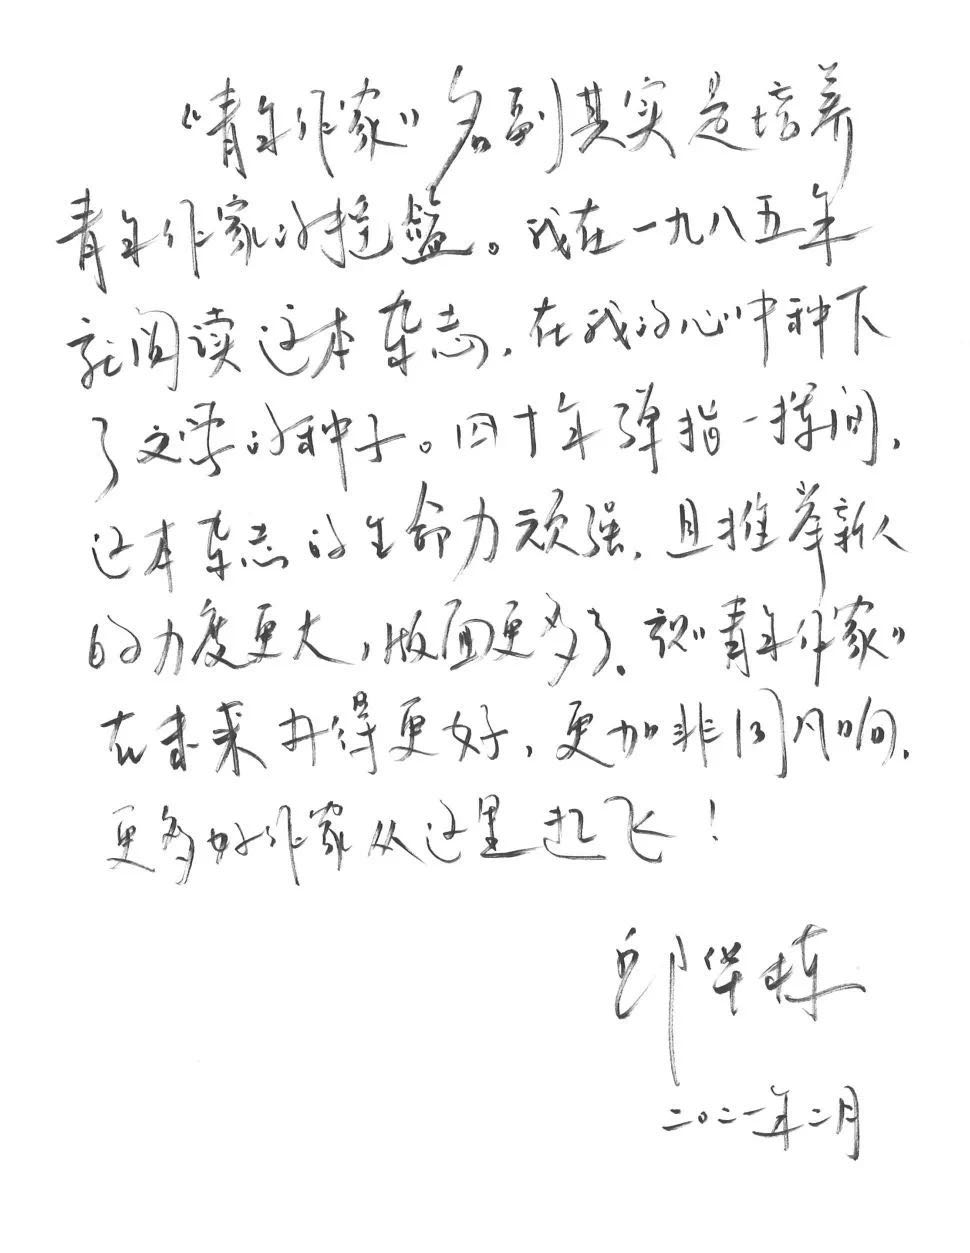 《青年作家》名副其实是培养
青年作家的摇篮。我在一九八五年
就阅读这本杂志，在我的心中种下
了文学的种子。四十年弹指一挥间，
这本杂志的生命力顽强，且推举新人
的力度更大，版面更多了。祝《青年作家》
在未来办得更好，更加非同凡响，
更多好作家从这里起飞！
邱华栋
二〇二一年二月